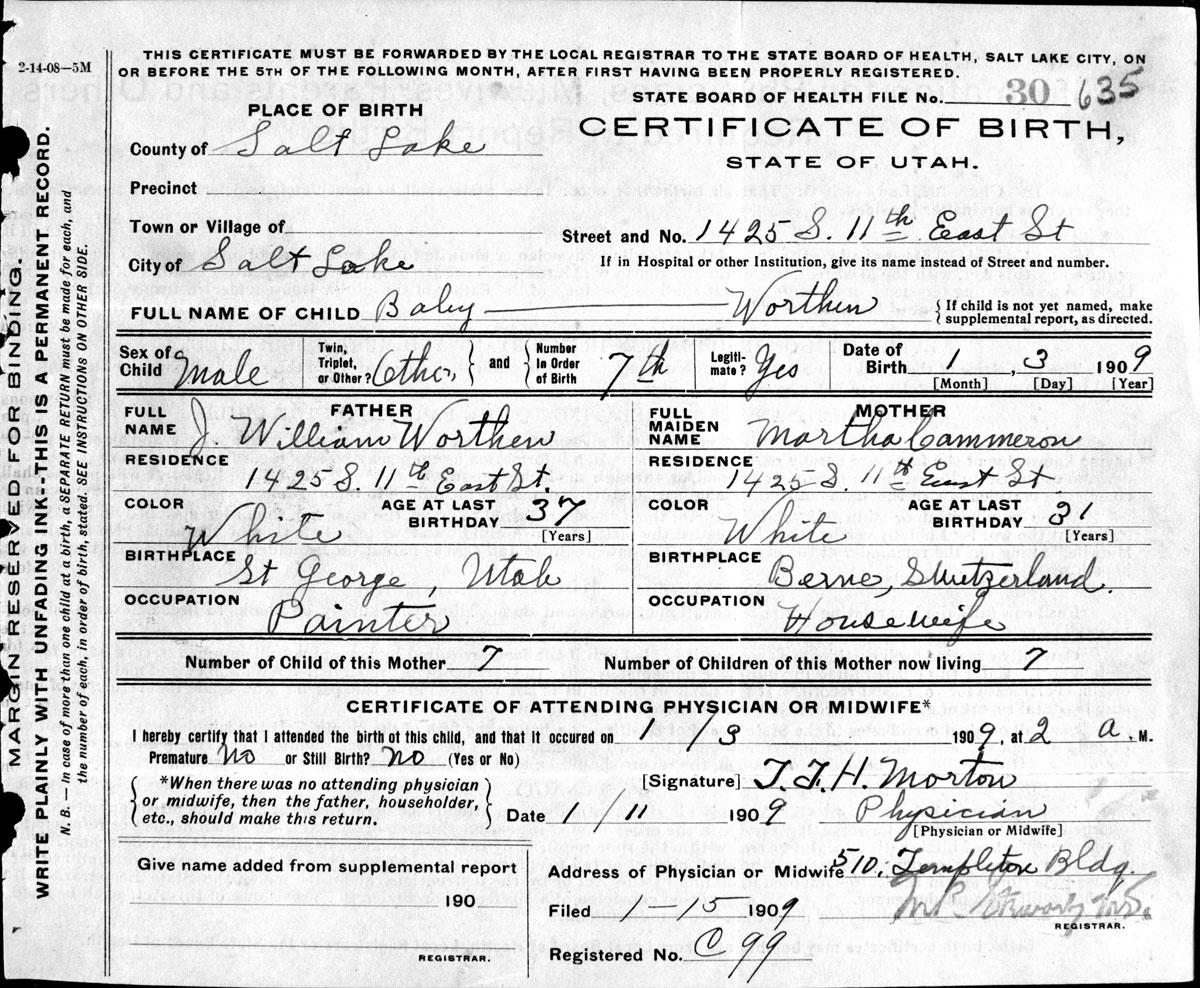 2-14-08—5M
THIS CERTIFICATE MUST BE FORWARDED BY THE LOCAL REGISTRAR TO THE STATE BOARD OF HEALTH, SALT LAKE CITY, ON
OR BEFORE THE 5TH OF THE FOLLOWING MONTH, AFTER FIRST HAVING BEEN PROPERLY REGISTERED.
STATE BOARD OF HEALTH FILE No. 30 635
CERTIFICATE OF BIRTH,
STATE OF UTAH.
PLACE OF BIRTH
County of Salt Lake
Precinct
Town or Village of
Street and No. 1425 S. 11th East St
City of Salt Lake
If in Hospital or other Institution, give its name instead of Street and number.
FULL NAME OF CHILD Baby — Worthen {If child is not yet named, make supplemental report, as directed.
Sex of Child Male Twin, Triplet, or Other? Other } and { Number In Order of Birth 7th Legiti-mate? Yes Date of Birth 1, 3 1909
[Month] [Day] [Year]
FATHER
FULL NAME J William Worthen
RESIDENCE 1425 S. 11th East St.
COLOR White AGE AT LAST BIRTHDAY 37 [Years]
BIRTHPLACE St George, Utah
OCCUPATION Painter
MOTHER
FULL MAIDEN NAME Martha Cammeron
RESIDENCE 1425 S. 11th East St
COLOR White AGE AT LAST BIRTHDAY 31 [Years]
BIRTHPLACE Berne, Switzerland.
OCCUPATION Housewife
Number of Child of this Mother 7 Number of Children of this Mother now living 7
CERTIFICATE OF ATTENDING PHYSICIAN OR MIDWIFE*
I hereby certify that I attended the birth of this child, and that it occured on 1/3 1909, at 2 a.M.
Premature No or Still Birth? No (Yes or No)
{*When there was no attending physician
or midwife, then the father, householder,
etc., should make this return.}
[Signature] T.T.H. Morton
Date 1/11 1909 Physician
[Physician or Midwife]
Give name added from supplemental report
190
REGISTRAR.
Address of Physician or Midwife 510, Templeton Bldg.
Filed 1-15 1909
REGISTRAR.
Registered No. C 99
MARGIN RESERVED FOR BINDING.
WRITE PLAINLY WITH UNFADING INK---THIS IS A PERMANENT RECORD.
N. B.—in case of more than one child at a birth, a SEPARATE RETURN must be made for each, and
the number of each, in order of birth, stated. SEE INSTRUCTIONS ON OTHER SIDE.